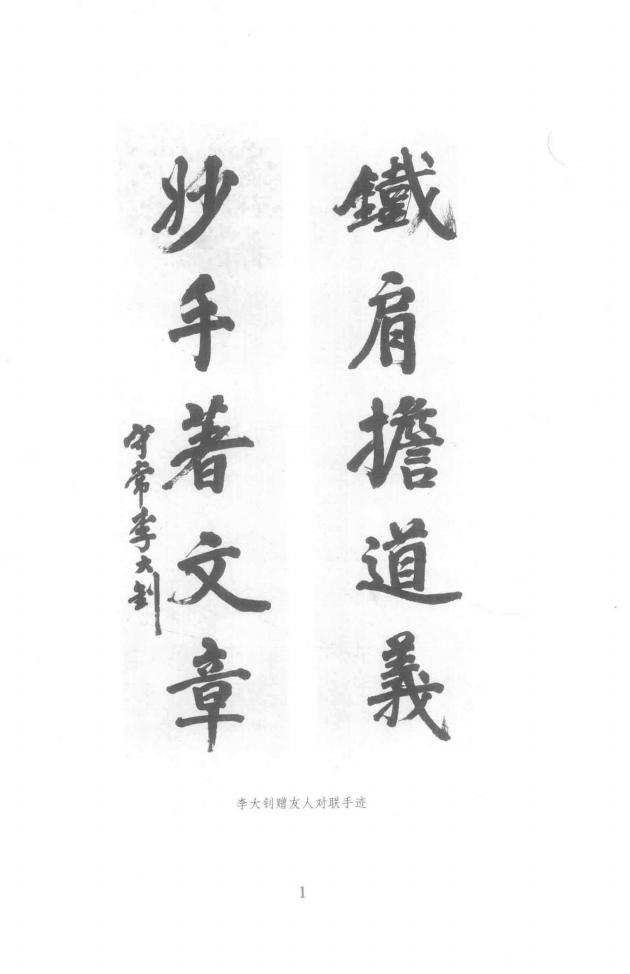 鐵肩擔道義
妙手著文章
守常李大釗
李大钊赠友人对联手迹
1